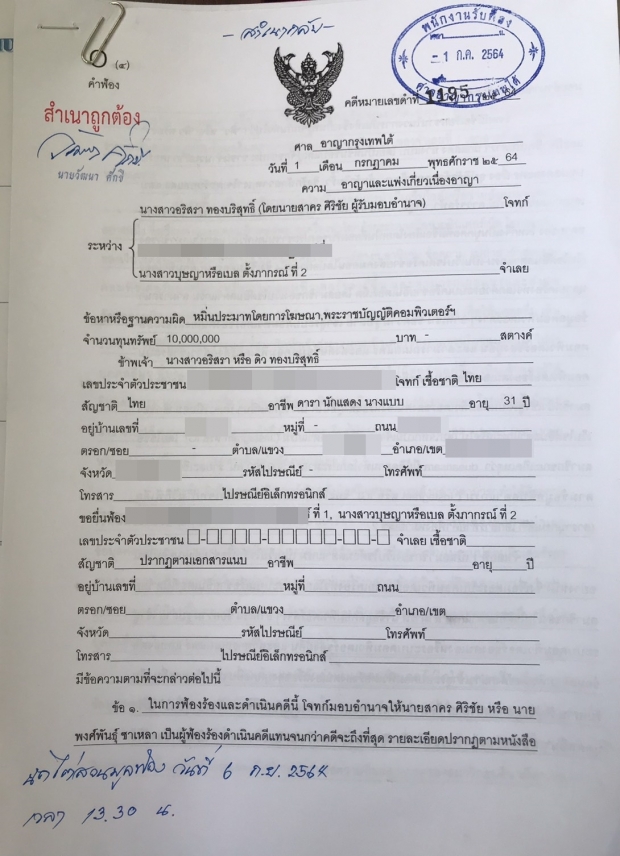 - สำเนาคู่ฉบับ -
(๔)
คำฟ้อง
สำเนาถูกต้อง
พนักงานรับฟ้อง
- 1 ก.ค. 2564
คดีหมายเลขดำที่ 1195
ศาล อาญากรุงเทพใต้
วันที่ 1 เดือน กรกฎาคม พุทธศักราช ๒๕ 64
ความ อาญาและแพ่งเกี่ยวเนื่องอาญา
นางสาวอริสรา ทองบริสุทธิ์ (โดยนายสาคร ศิริชัย ผู้รับมอบอำนาจ) โจทก์
ระหว่าง
นางสาวบุษญาหรือเบล ตั้งภากรณ์ ที่ 2 จำเลย
ข้อหาหรือฐานความผิด หมิ่นประมาทโดยการโฆษณา,พระราชบัญญัติคอมพิวเตอร์ฯ
จำนวนทุนทรัพย์ 10,000,000 บาท - สตางค์
ข้าพเจ้า นางสาวอริสรา หรือ ดิว ทองบริสุทธิ์
เลขประจำตัวประชาชน โจทก์ เชื้อชาติ ไทย
สัญชาติ ไทย อาชีพ ดารา นักแสดง นางแบบ อายุ 31 ปี
อยู่บ้านเลขที่ หมู่ที่ - ถนน
ตรอก/ซอย - ตำบล/แขวง อำเภอ/เขต
จังหวัด รหัสไปรษณีย์ - โทรศัพท์
โทรสาร ไปรษณีย์อิเล็กทรอนิกส์
ขอยื่นฟ้อง ที่ 1, นางสาวบุษญาหรือเบล ตั้งภากรณ์ ที่ 2
เลขประจำตัวประชาชน จำเลย เชื้อชาติ
สัญชาติ ปรากฏตามเอกสารแนบ อาชีพ อายุ ปี
อยู่บ้านเลขที่ หมู่ที่ ถนน
ตรอก/ซอย ตำบล/แขวง อำเภอ/เขต
จังหวัด รหัสไปรษณีย์ โทรศัพท์
โทรสาร ไปรษณีย์อิเล็กทรอนิกส์
มีข้อความตามที่จะกล่าวต่อไปนี้
ข้อ ๑. ในการฟ้องร้องและดำเนินคดีนี้ โจทก์มอบอำนาจให้นายสาคร ศิริชัย หรือ นาย
พงศ์พันธุ์ ซาเหลา เป็นผู้ฟ้องร้องดำเนินคดีแทนจนกว่าคดีจะถึงที่สุด รายละเอียดปรากฏตามหนังสือ
นัดไต่สวนมูลฟ้อง วันที่ 6 ก.ย. 2564
เวลา 13.30 น.